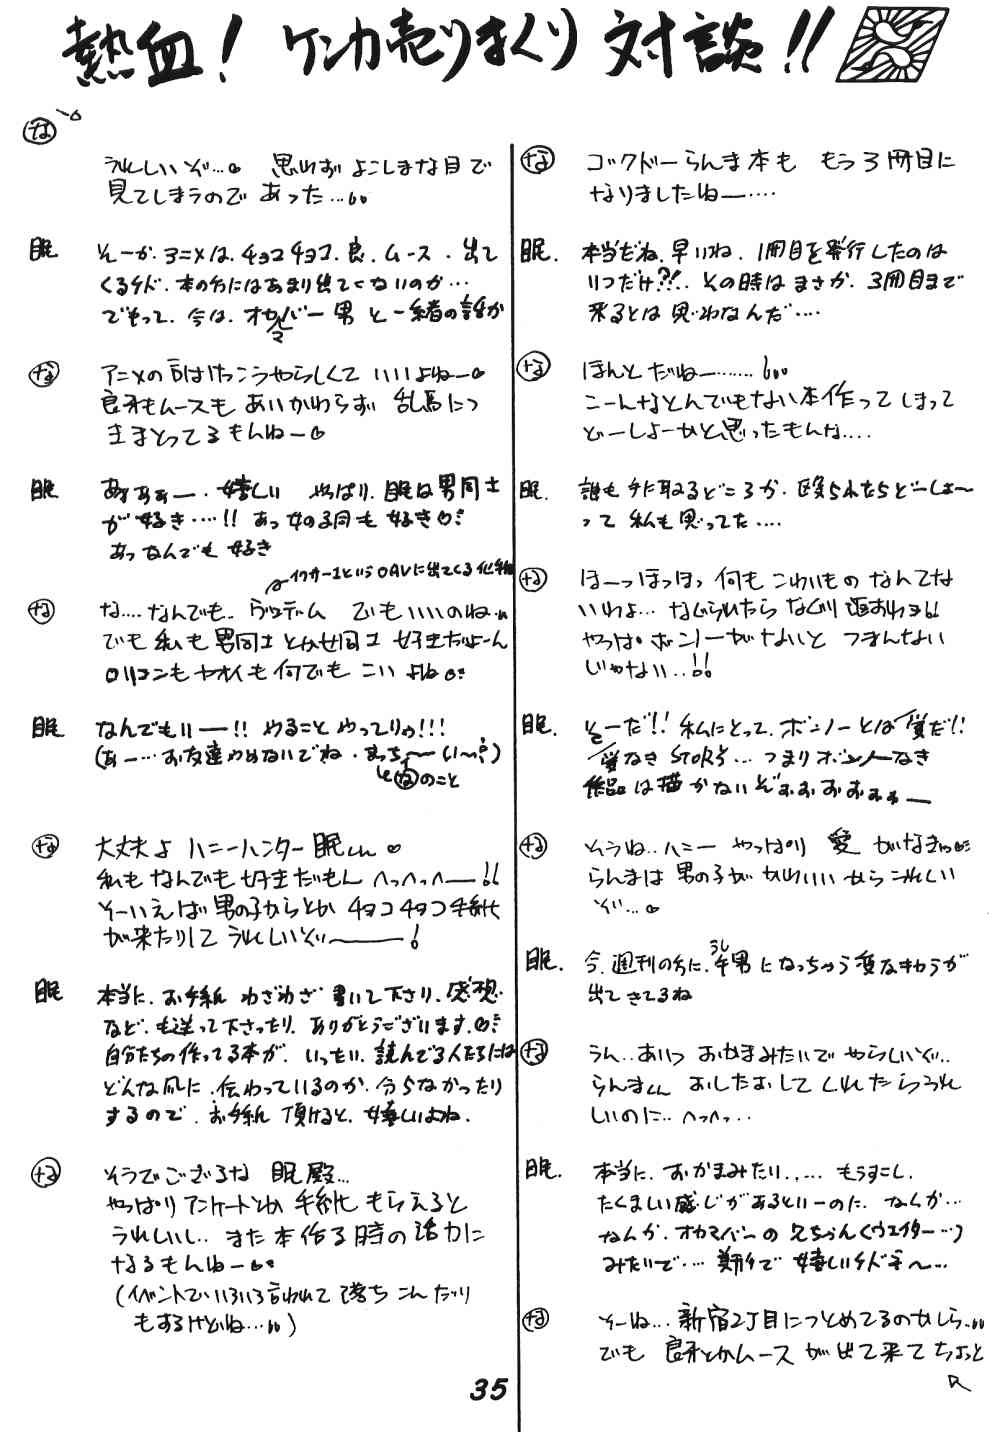 熱血! ケンカ売りまくり 対談!!
な コックドーらんま本も もう3冊目に
なりましたねー‥‥
眠. 本当だね. 早いね. 1冊目を発行したのは
いつだけ?!. その時は まさか. 3冊目まで
来るとは 思わなんだ‥‥
な ほんと だねー‥‥‥
こーんなとんでもない本作って しまって
どーしよーかと思ったもんな‥‥
眠. 誰も 手に取るどころか. 殴られたらどーしよ〜
って 私も思ってた‥‥
な ほーっほっほっ 何も こわいもの なんてな
いわよ… なぐられたら なぐり返すわョ!!
やっぱ ボンノーがないと つまんない
じゃない‥!!
眠. そーだ!! 私にとって. ボンノーとは 質だ!!
質なき STORY… つまりボンノーなき
作品は描かないぞぉぉぉぉぉぉー
な そうね‥ハニー やっぱり 愛 がなきゃ
らんまは 男の子が かわいい から うれしい
ぞ…
眠. 今. 週刊の方に. 牛男になっちゃう変なキャラが
うし
出てきてるね
な うん‥あいつ おかまみたいで やらしいぞ‥
らんまくん おしたおして くれたらうれ
しいのに‥へっへっ‥
眠. 本当に. おかまみたい‥… もうすこし.
たくましい感じがあるといーのに. なんか…
なんか. オカマバーの 兄ちゃん(ウエイター…)
みたいで‥‥ 嬉しいケドネ〜…
な そーね… 新宿2丁目につとめてるのかしら‥
でも 良牙とかムース が出て来て ちょっと
な
うれしいぞ… 思わず よこしまな目で
見てしまうので あった…
眠 そーか. アニメは. チョコチョコ. 良. ムース. 出て
くるケド. 本の方にはあまり出てこないのか…
でもって. 今は. オカマバー男 と一緒の話か
な アニメの 方は けっこうやらしくて いいよねー
良牙もムースも あいかわらず 乱馬につ
きまとってるもんねー
眠 あぁぁぁー. 嬉しい やっぱり. 眠は男同士
が 好き‥‥!! あっ 女の子同も 好き
あっ なんでも 好き
イクサー1というOAVに出てくる化物
な な‥‥なんでも‥ ヴェデム でもいいのね
でも 私も 男同士 とか女同士 好きだよーん
ロリコンもヤオイも何でも こい よね
眠 なんでもいー!! やること やってりゃ!!!
(あー…お友達やめないでね. まっち〜い〜)
なのこと
な 大丈夫よ ハニーハンター 眠くん
私も なんでも 好きだもん へっへっへー!!
そーいえば 男の子からとか チョコチョコ 手紙
が来たりして うれしいぞー!
眠 本当に. お手紙 わざわざ 書いて下さり. 感想
など. も送って下さったり. ありがとうございます.
自分たちの作ってる本が. いったい. 読んでる人たちには
どんな風に. 伝わっているのか. 分らなかったり
するので. お手紙 頂けると. 嬉しいよね.
な そうでござるな 眠殿…
やっぱり アンケートとか 手紙 もらえると
うれしいし‥ また 本作る時の活力に
なるもんねー
(イベントでいろいろ言われて 落ち こんだり
もするけどね…)
35